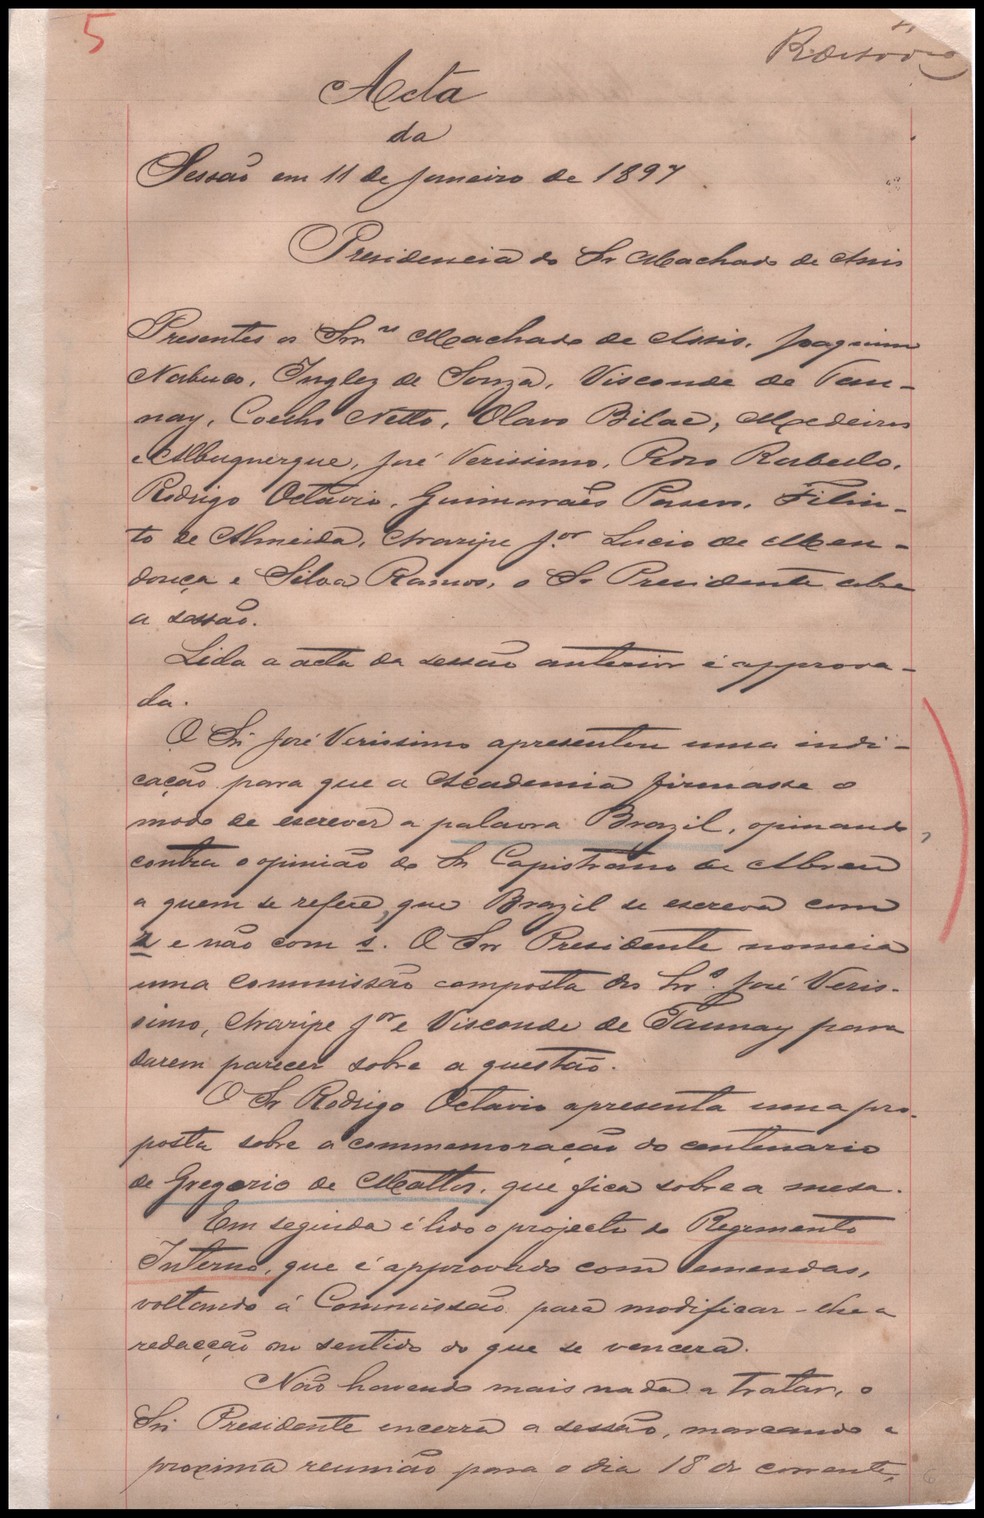 5
Acta
da
Sessão em 11 de Janeiro de 1897.
Presidencia do Sr Machado de Assis
Presentes os Srs Machado de Assis, Joaquim
Nabuco, Inglez de Souza, Visconde de Tau-
nay, Coelho Netto, Olavo Bilac, Medeiros
e Albuquerque, José Verissimo, Pedro Rabello,
Rodrigo Octavio, Guimarães Passos, Filin-
to de Almeida, Araripe Jor Lucio de Men-
donça e Silva Ramos, o Sr Presidente abre
a sessão.
Lida a acta da sessão anterior é approva-
da.
O Sr José Verissimo apresentou uma indi-
cação para que a Academia firmasse o
modo de escrever a palavra Brazil, opinando
contra o opinião do Sr Capistrano de Abreu
a quem se refere, que Brazil se escreva com
z e não com s. O Snr Presidente nomeia
uma commissão composta dos Srs. José Veris-
simo, Araripe Jor e Visconde de Taunay para
darem parecer sobre a questão.
O Sr Rodrigo Octavio apresenta uma pro-
posta sobre a commemoração do centenario
de Gregorio de Mattos, que fica sobre a mesa.
Em seguida é lido o projecto do Regimento
Interno, que é approvado com emendas,
voltando á Commissão para modificar-lhe a
redacção no sentido do que se vencera.
Não havendo mais nada a tratar, o
Sr Presidente encerra a sessão, marcando a
proxima reunião para o dia 18 do corrente,